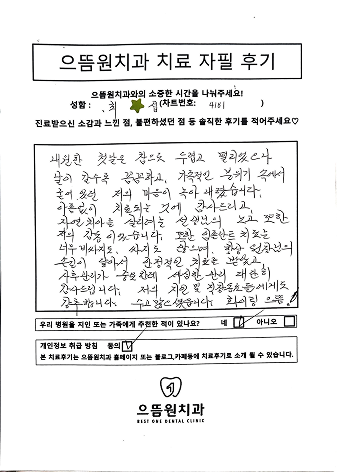 으뜸원치과 치료 자필 후기
으뜸원치과와의 소중한 시간을 나눠주세요!
성함 : 최 섭 (차트번호: 4181 )
진료받으신 소감과 느낀 점, 불편하셨던 점 등 솔직한 후기를 적어주세요♡
내원한 첫날은 참으로 두렵고 떨리었으나
날이 갈수록 꼼꼼하고, 가족적인 분위기 속에서
얼어 있던 저의 마음이 녹아 내렸습니다.
아픔없이 치료되는 것에 감사드리고,
자연치아를 살리려는 선생님의 노고 또한
저의 감동이었습니다. 또한 임플란트 치료는
너무 비싸지도, 싸지도 않으며, 원장님의
손길이 닿아서 안정적인 치료를 받았고
사후관리가 중요한데 세심한 관리 대단히
감사드립니다. 저의 지인 및 직장동료들에게도
강추합니다. 수고 많으셨습니다. 화이팅 으뜸
우리 병원을 지인 또는 가족에게 추천한 적이 있나요? 네 아니오
개인정보 취급 방침 동의
본 치료후기는 으뜸원치과 홈페이지 또는 블로그,카페등에 치료후기로 소개 될 수 있습니다.
으뜸원치과
BEST ONE DENTAL CLINIC